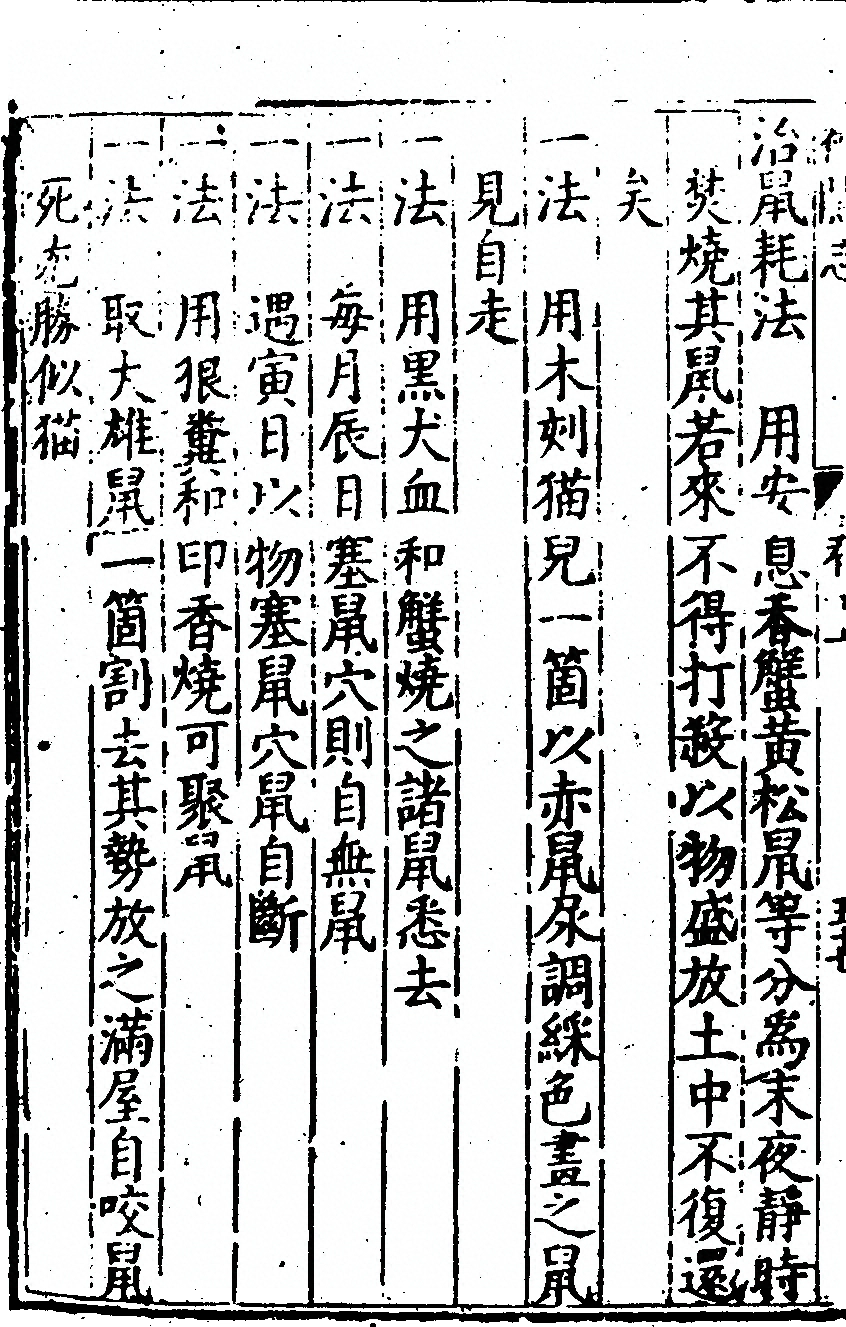 治鼠耗法　用安息香蟹黄松鼠等分為末夜靜時
焚燒其鼠若來不得打殺以物盛放土中不復還
矣
一法　用木刻猫兒一箇以赤鼠尿調綵色畫之鼠
見自走
一法　用黒犬血和蟹燒之諸鼠悉去
一法　每月辰日塞鼠穴則自無鼠
一法　遇寅日以物塞鼠穴鼠自斷
一法　用狼糞和印香燒可聚鼠
一法　取大雄鼠一箇割去其勢放之滿屋自咬鼠
死尤勝似猫